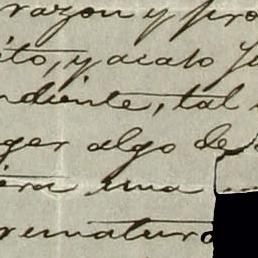 razon y pro
ito, y acaso ju
ndiente, tal
ger algo de
iera una
rematuro